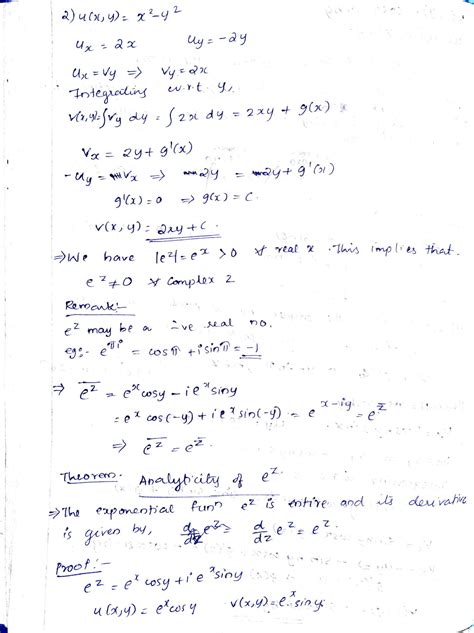 2) u(x,y) = x²-y²
uₓ = 2x u_y = -2y
uₓ = v_y ⇒ v_y = 2x
Integrating w.r.t. y,
v(x,y) = ∫v_y dy = ∫2x dy = 2xy + g(x)
vₓ = 2y + g'(x)
-u_y = vₓ ⇒ 2y = 2y + g'(x)
g'(x) = 0 ⇒ g(x) = C.
v(x,y) = 2xy + C.
⇒ We have |e^z| = e^x > 0 ∀ real x. This implies that.
e^z ≠ 0 ∀ complex z
Remark:-
e^z may be a -ve real no.
eg:- e^{πi} = cosπ + i sinπ = -1
⇒ \overline{e^z} = e^x cosy - i e^x siny
= e^x cos(-y) + i e^x sin(-y) = e^{x-iy} = e^{\overline{z}}
⇒ \overline{e^z} = e^{\overline{z}}
Theorem. Analyticity of e^z.
⇒ The exponential funⁿ e^z is entire and its derivative
is given by, d/dz e^z = e^z.
Proof:-
e^z = e^x cosy + i e^x siny
u(x,y) = e^x cosy v(x,y) = e^x siny